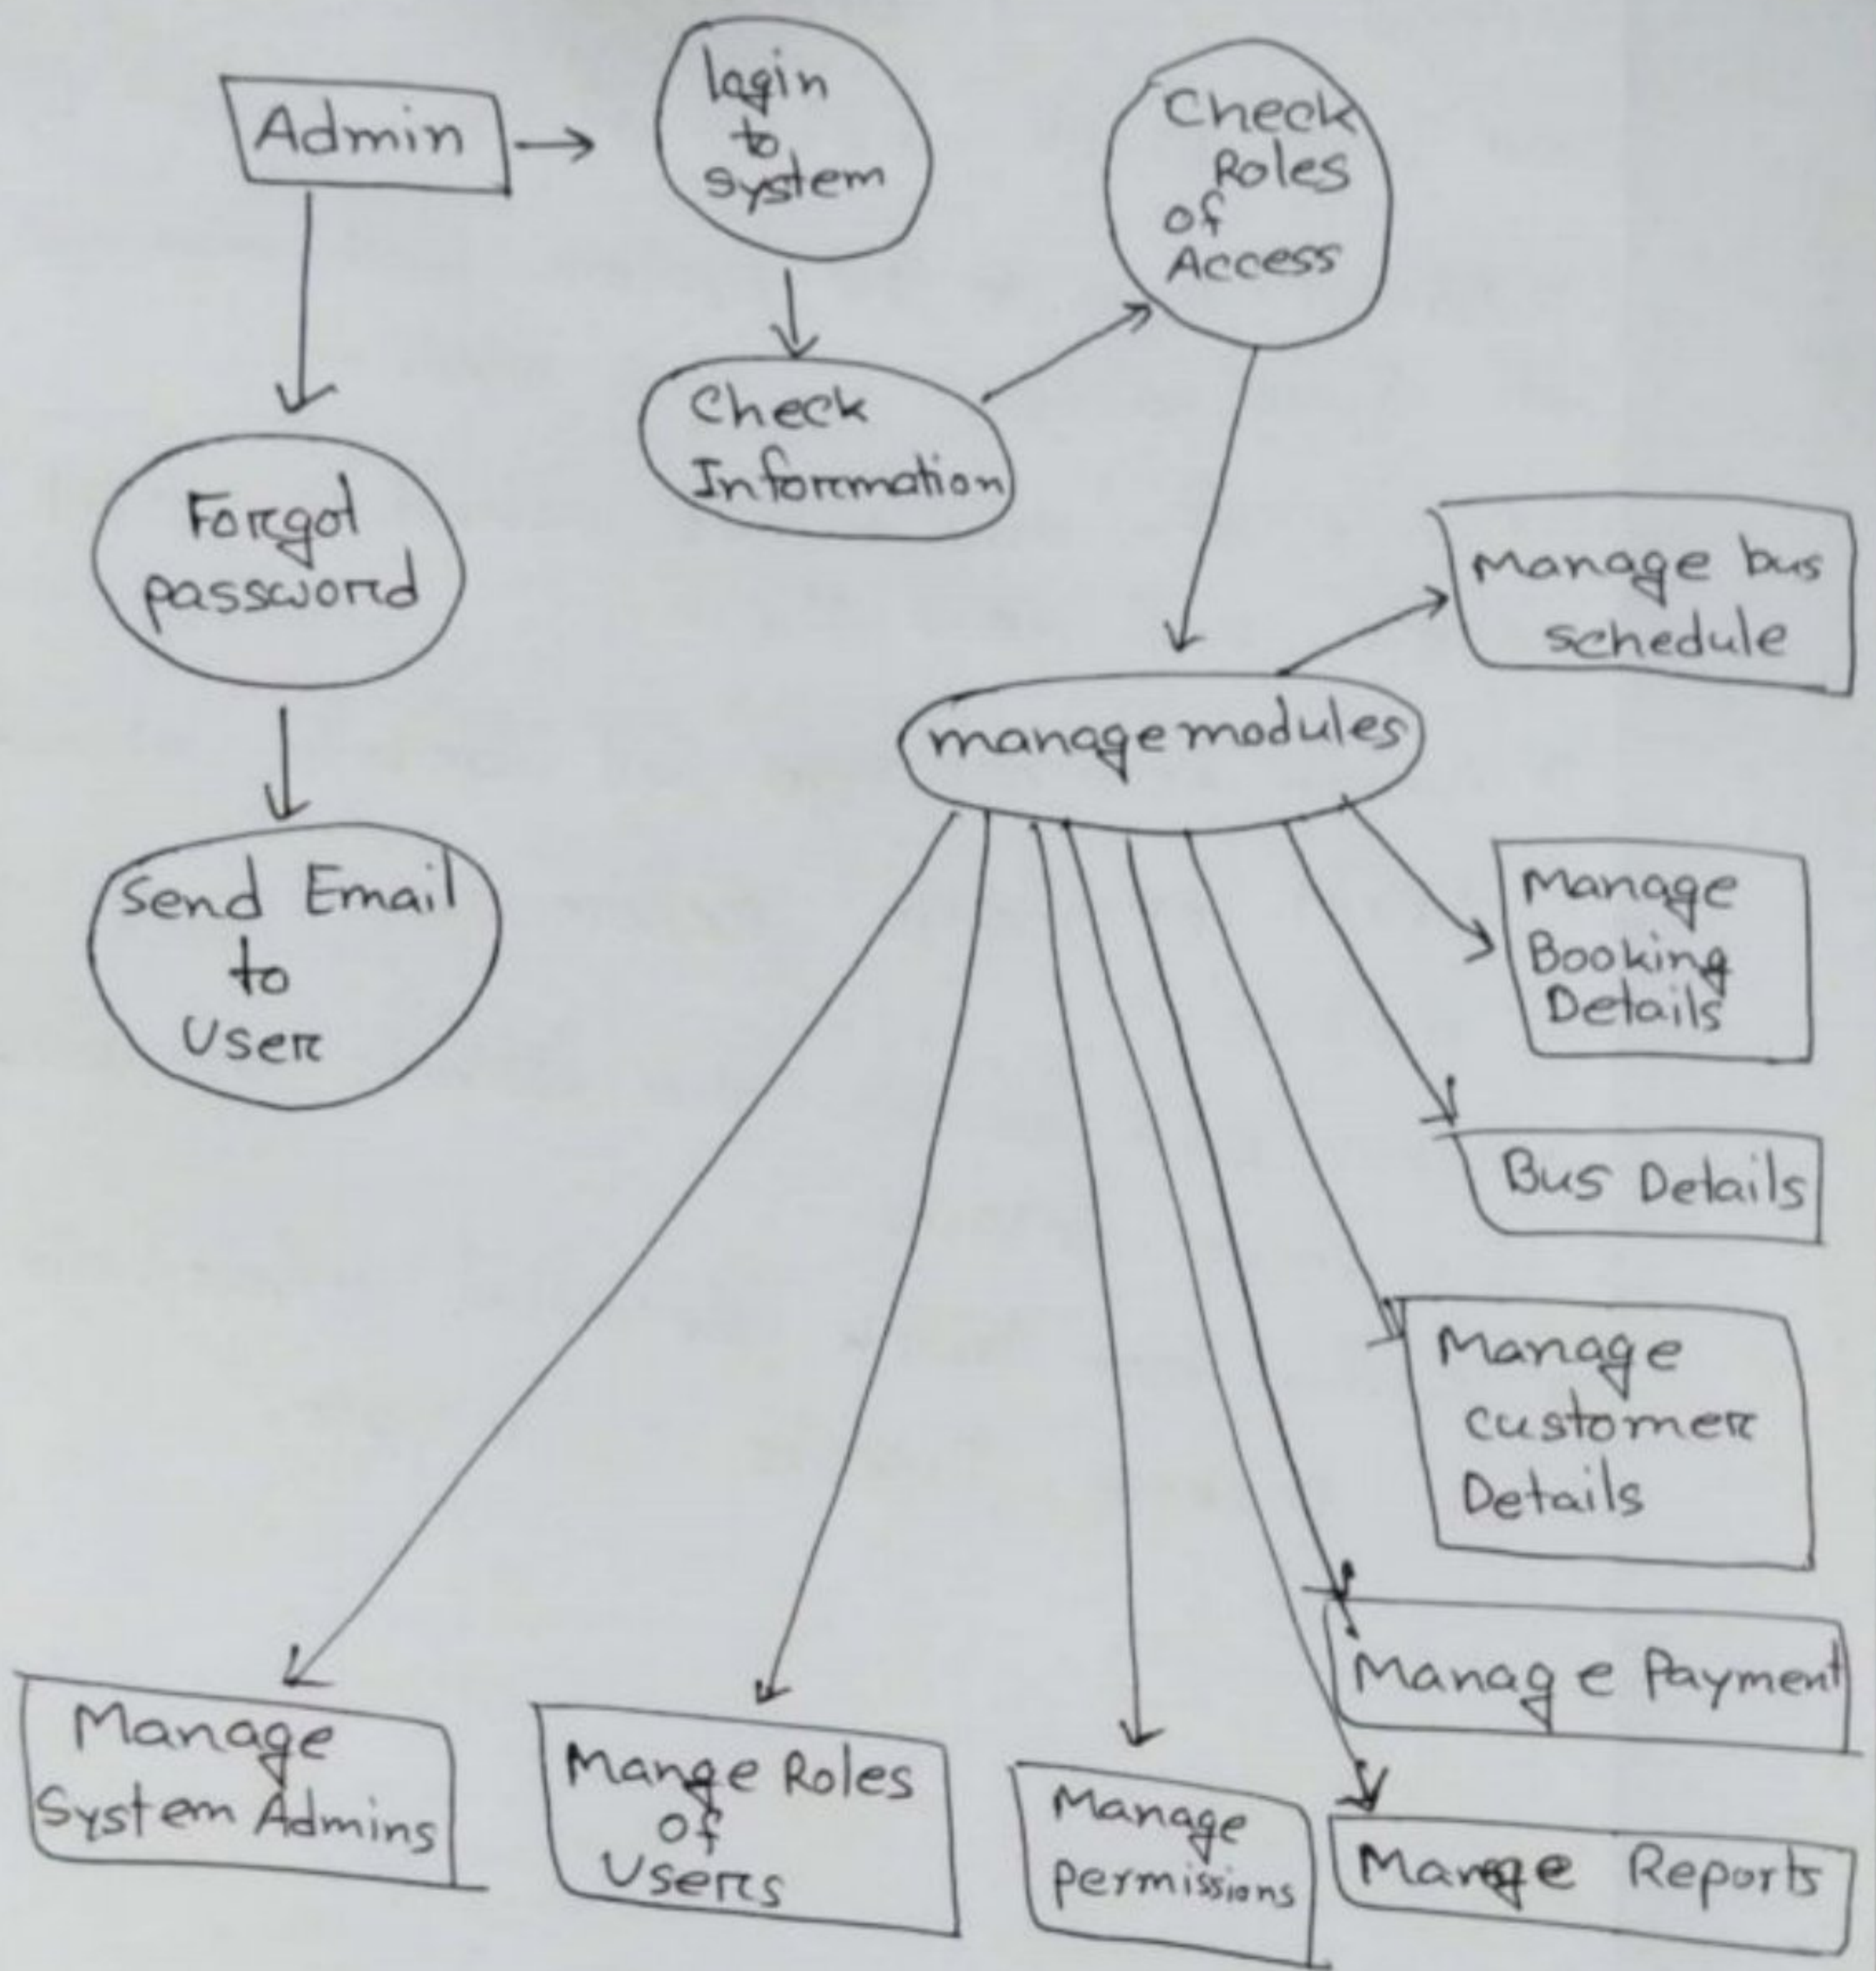 Admin
login
to
system
Check
Roles
of
Access
Check
Information
Forgot
password
Send Email
to
User
manage modules
Manage bus
schedule
Manage
Booking
Details
Bus Details
Manage
customer
Details
Manage Payment
Manage
System Admins
Mange Roles
of
Users
Manage
permissions
Mange Reports